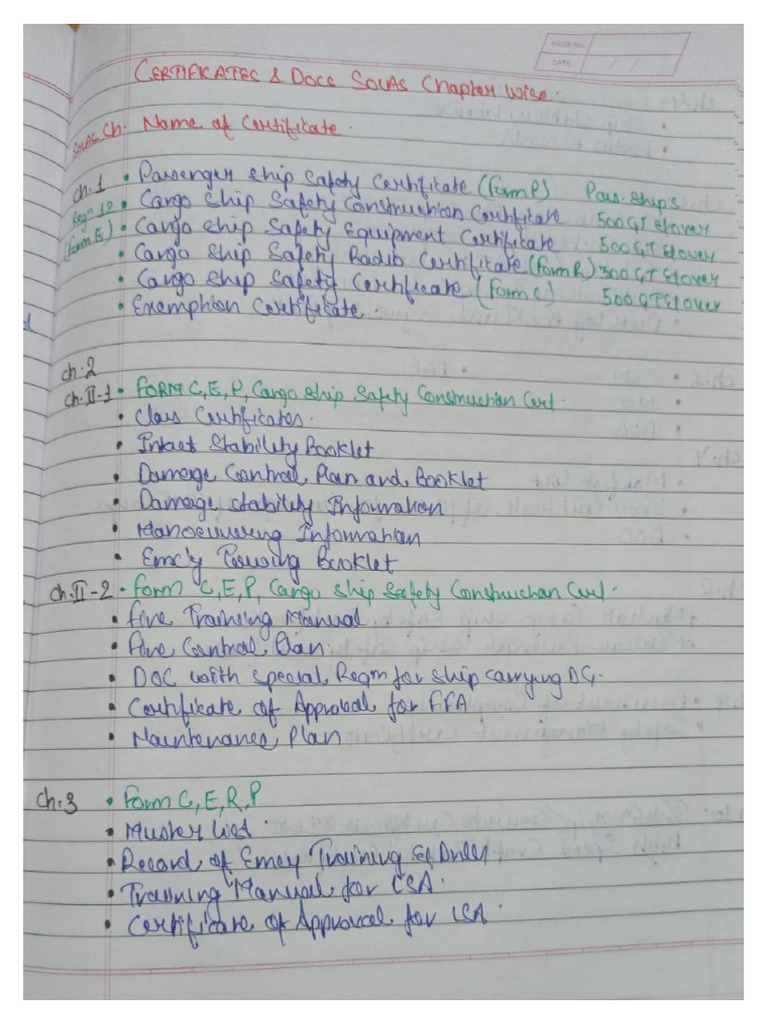 PAGE NO.
DATE
CERTIFICATES & DOCS SOLAS Chapter Wise.
SOLAS Ch. Name of Certificate.
Ch.1 • Passenger Ship Safety Certificate (Form P) Pass. Ships
Regn 12 • Cargo Ship Safety Construction Certificate 500 GT & over
(Form E) • Cargo Ship Safety Equipment Certificate 500 GT & over
• Cargo Ship Safety Radio Certificate (Form R) 300 GT & over
• Cargo Ship Safety Certificate (Form C) 500 GT & over
• Exemption Certificate.
Ch.2
Ch.II-1 • FORM C, E, P, Cargo Ship Safety Construction Cert.
• Class Certificates.
• Intact Stability Booklet
• Damage Control Plan and Booklet
• Damage Stability Information
• Manoeuvering Information
• Emc'y Towing Booklet
Ch.II-2 • Form C, E, P, Cargo Ship Safety Construction Cert.
• Fire Training Manual
• Fire Control Plan.
• DOC with special Reqm for ship carrying DG.
• Certificate of Approval for FFA
• Maintenance Plan
Ch.3 • Form C, E, R, P
• Muster List.
• Record of Emcy Training & Drill
• Training Manual for LSA.
• Certificate of Approval for LSA.